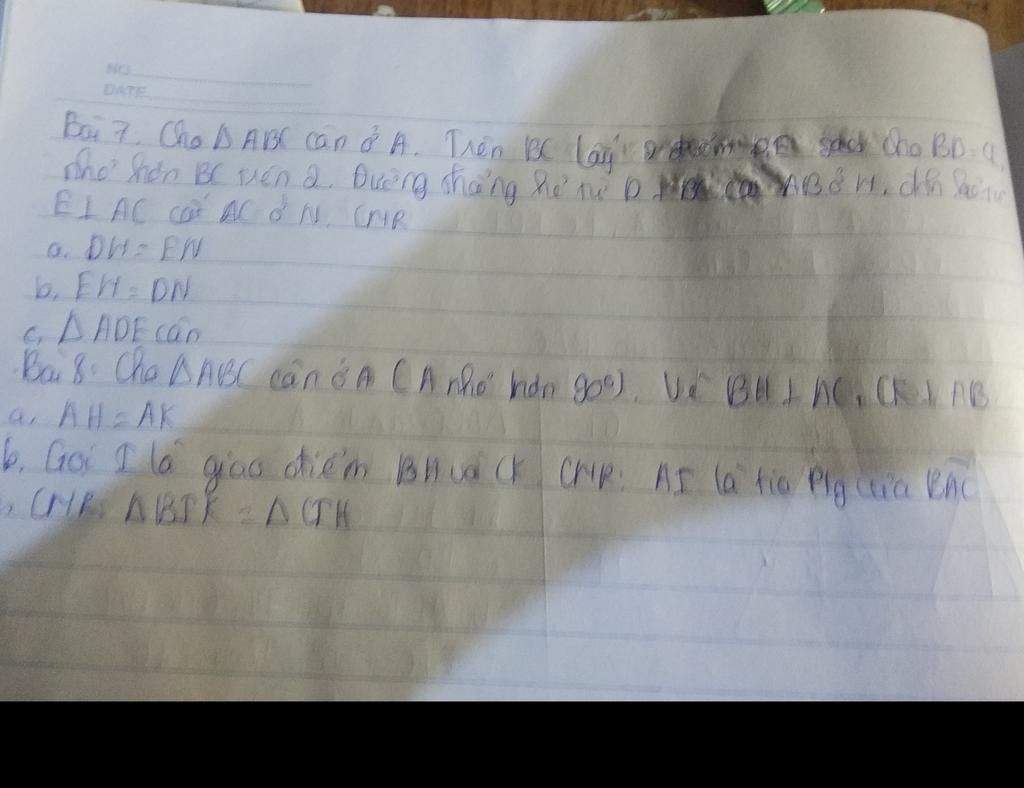 NO
DATE
Bài 7. Cho Δ ABC cân ở A. Trên BC lấy 2 điểm D,E sao cho BD=C
nhỏ hơn BC trên 2. Đường thẳng kẻ từ D ⊥ BC cắt AB ở M, đth kẻ từ
E ⊥ AC cắt AC ở N. CMR
a. DM = EN
b, EM = DN
c, Δ ADE cân
Bài 8: Cho ΔABC cân ở A (A nhỏ hơn 90°). Vẽ BH ⊥ AC, CK ⊥ AB
a, AH = AK
b, Gọi I là giao điểm BH và CK CMR: AI là tia p/g của BAC
, CMR: Δ BIK = Δ CIH